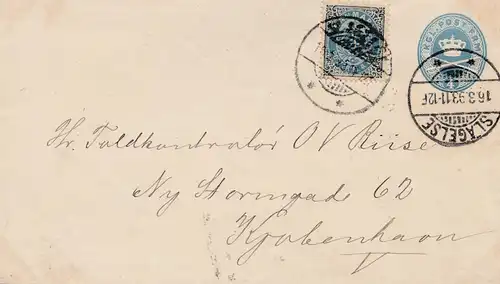 KGL·POST·FRM
SLAGELSE
16.3.93 11-12F
Hr. Toldkontrolør O V Riise
Ny Stormgade 62
Kjøbenhavn
V